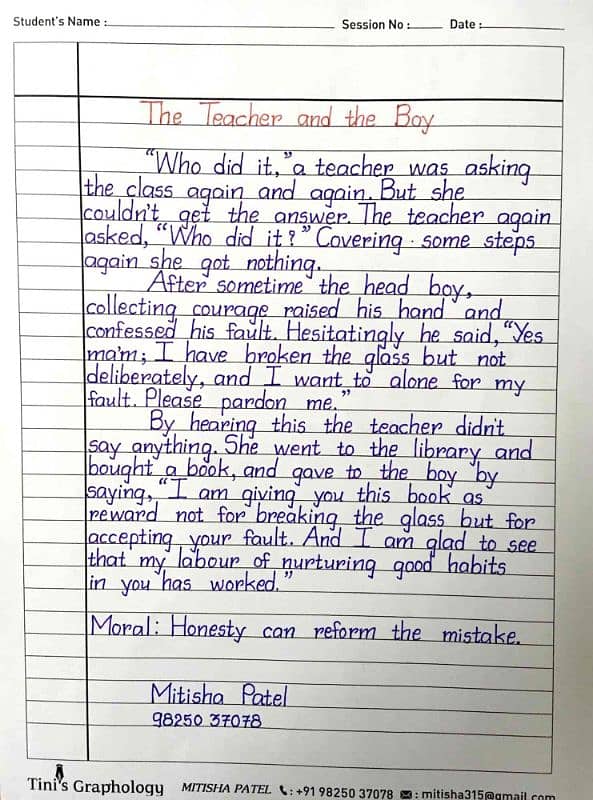 Student's Name :
Session No :
Date :
The Teacher and the Boy
"Who did it," a teacher was asking
the class again and again. But she
couldn't get the answer. The teacher again
asked, "Who did it?" Covering some steps
again she got nothing.
After sometime the head boy,
collecting courage raised his hand and
confessed his fault. Hesitatingly he said, "Yes
ma'm; I have broken the glass but not
deliberately, and I want to alone for my
fault. Please pardon me."
By hearing this the teacher didn't
say anything. She went to the library and
bought a book, and gave to the boy by
saying, "I am giving you this book as
reward not for breaking the glass but for
accepting your fault. And I am glad to see
that my labour of nurturing good habits
in you has worked."
Moral: Honesty can reform the mistake.
Mitisha Patel
98250 37078
Tini's Graphology MITISHA PATEL : +91 98250 37078 : mitisha315@gmail.com